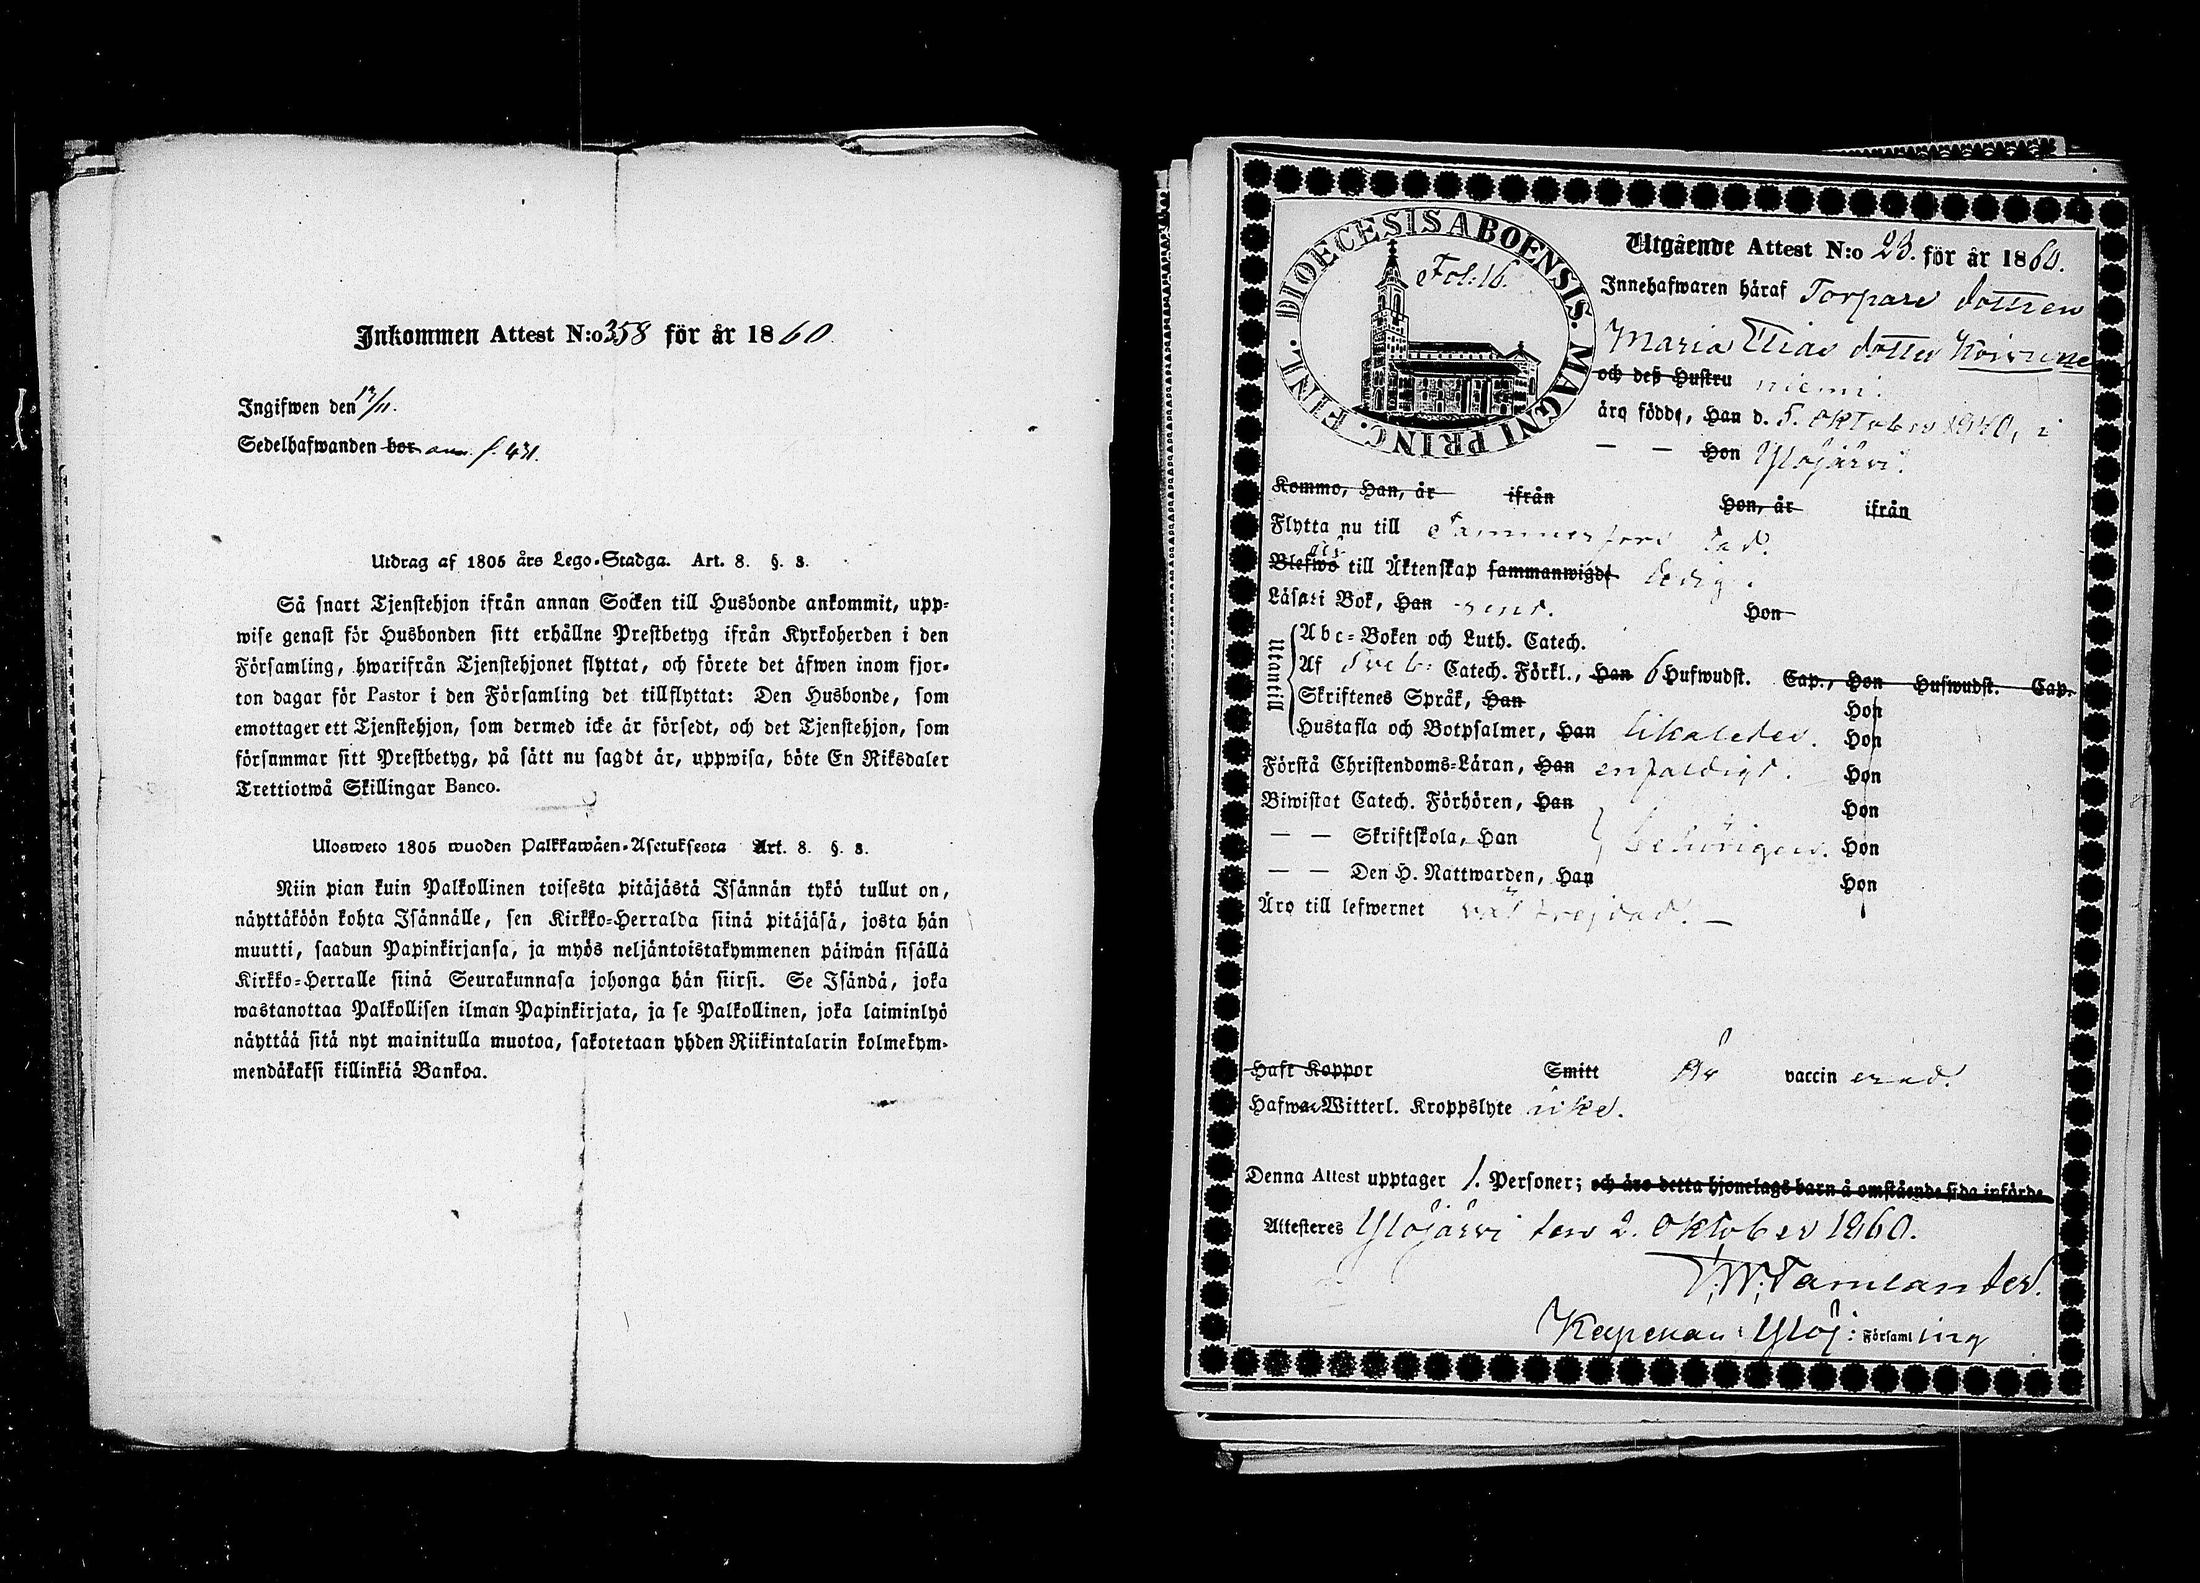 Inkommen Attest N:o 358 för år 1860.
Ingifwen den 13/11.
Sedelhafwanden bor ann. f. 431.
Utdrag af 1805 års Lego-Stadga. Art. 8. §. 8.
Så snart Tjenstehjon ifrån annan Socken till Husbonde ankommit, upp-
wise genast för Husbonden sitt erhållne Prestbetyg ifrån Kyrkoherden i den
Församling, hwarifrån Tjenstehjonet flyttat, och förete det äfwen inom fjor-
ton dagar för Pastor i den Församling det tillflyttat: Den Husbonde, som
emottager ett Tjenstehjon, som dermed icke är försedt, och det Tjenstehjon, som
försummar sitt Prestbetyg, på sätt nu sagdt är, uppwisa, böte En Riksdaler
Trettiotwå Skillingar Banco.
Ulosweto 1805 wuoden Palkkawäen-Asetuksesta Art. 8. §. 8.
Niin pian kuin Palkollinen toisesta pitäjästä Isännän tykö tullut on,
näyttäköön kohta Isännälle, sen Kirkko-Herralda siinä pitäjäsä, josta hän
muutti, saadun Papinkirjansa, ja myös neljäntoistakymmenen päiwän sisällä
Kirkko-Herralle siinä Seurakunnasa johonga hän siirsi. Se Isändä, joka
wastanottaa Palkollisen ilman Papinkirjata, ja se Palkollinen, joka laiminlyö
näyttää sitä nyt mainitulla muotoa, sakotetaan yhden Riikintalarin kolmekym-
mendäkaksi killinkiä Bankoa.
DIOECESIS ABOENSIS. MAGNI PRINC. FINL.
Fol: 16.
Utgående Attest N:o 23. för år 1860.
Innehafwaren häraf Torpare dottren
Maria Elias dotter Koivune
och deß Hustru niemi.
äro födde, Han d. 5. Oktober 1840, i
— — Hon Ylöjärvi.
Kommo, Han, år ifrån Hon, år ifrån
Flytta nu till Tammerfors stad.
Blefwo till Äktenskap sammanwigde ledig.
Läsa i Bok, Han Hon
Utantill
Abc-Boken och Luth. Catech.
Af Sveb: Catech. Förkl., Han 6 Hufwudst. Cap., Hon Hufwudst. Cap.
Skriftenes Språk, Han Hon
Hustafla och Botpsalmer, Han likaledes. Hon
Förstå Christendoms-Läran, Han enfaldigt. Hon
Biwistat Catech. Förhören, Han Hon
— — Skriftskola, Han behörigen. Hon
— — Den H. Nattwarden, Han Hon
Äro till lefwernet väl frejdad. —
Haft Koppor Smitt är vaccinerad.
Hafwa Witterl. Kroppslyte icke.
Denna Attest upptager 1. Personer; och äro detta hjonelags barn å omstående sida införde
Attesteres Ylöjärvi den 2. Oktober 1860.
Kapellan i Ylöj: Församling